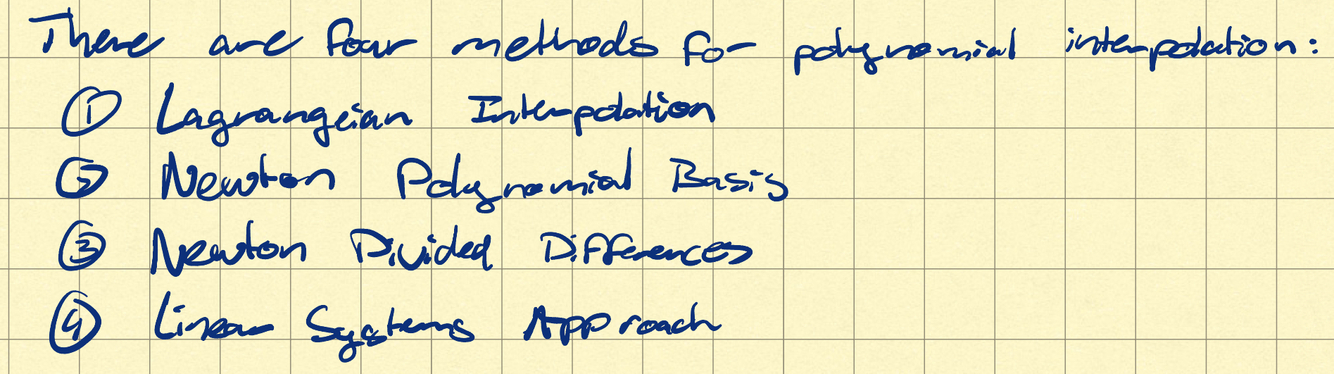 There are four methods for polynomial interpolation:
① Lagrangeian Interpolation
② Newton Polynomial Basis
③ Newton Divided Differences
④ Linear Systems Approach